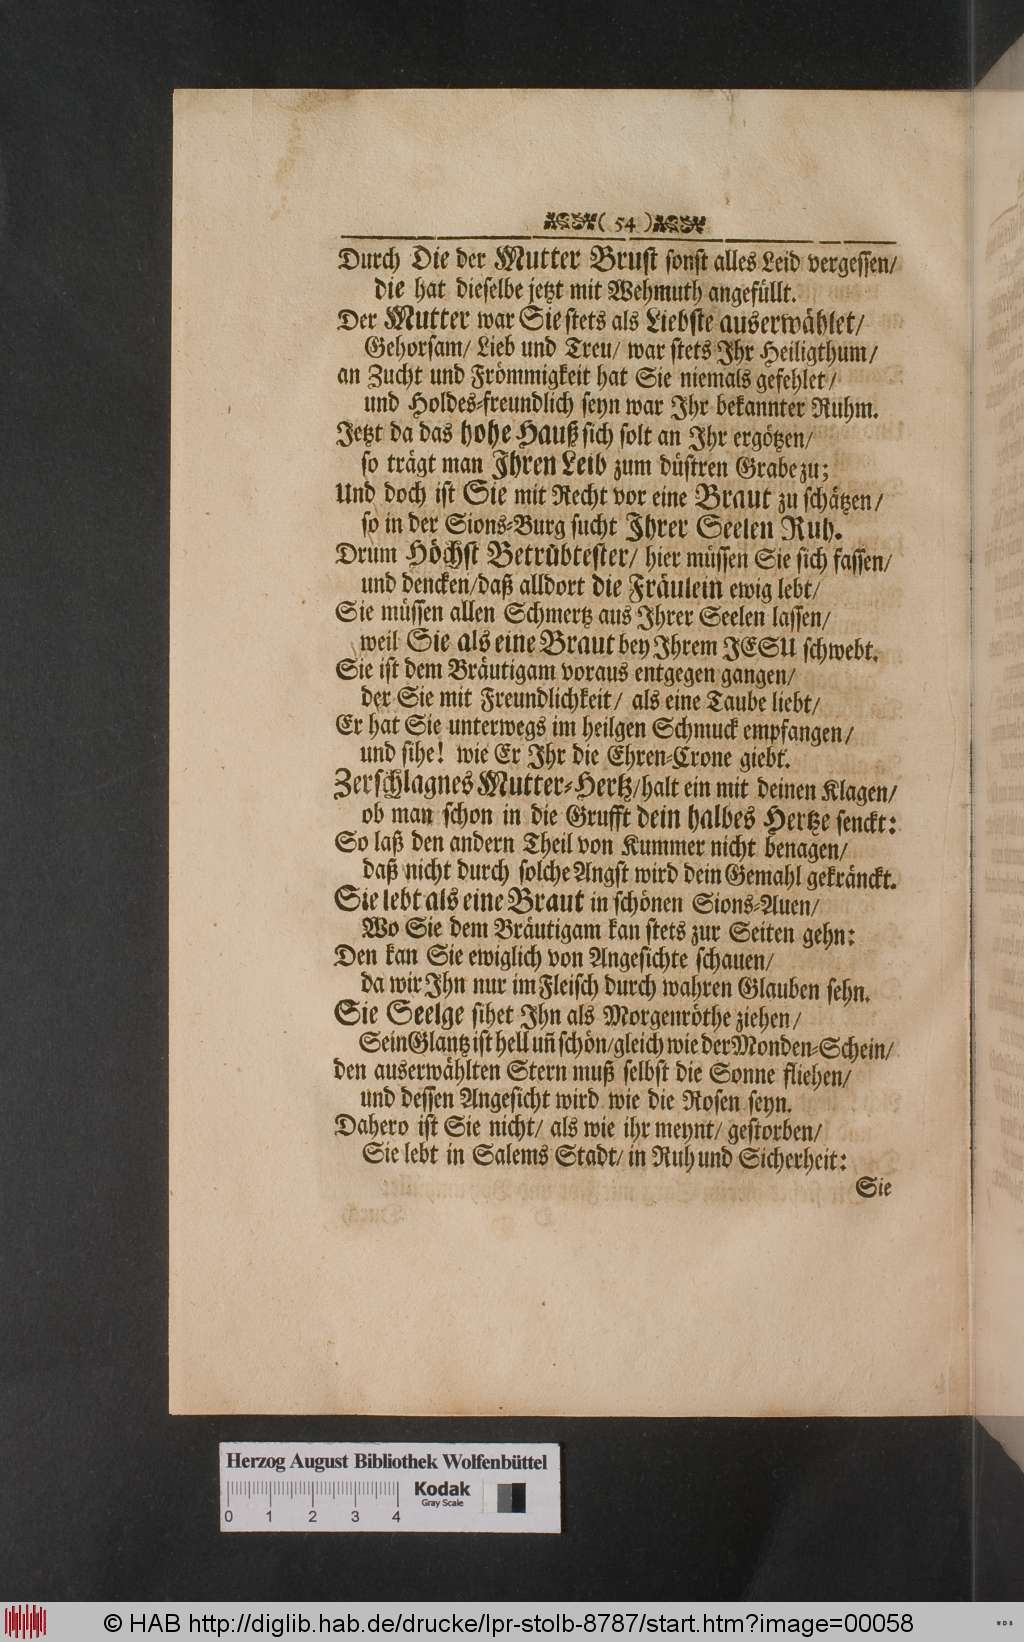 ( 54 )
Durch Die der Mutter Brust sonst alles Leid vergessen/
die hat dieselbe jetzt mit Wehmuth angefüllt.
Der Mutter war Sie stets als Liebste auserwählet/
Gehorsam/ Lieb und Treu/ war stets Ihr Heiligthum/
an Zucht und Frömmigkeit hat Sie niemals gefehlet/
und Holdes-freundlich seyn war Ihr bekannter Ruhm.
Jetzt da das hohe Hauß sich solt an Ihr ergötzen/
so trägt man Ihren Leib zum düstren Grabe zu;
Und doch ist Sie mit Recht vor eine Braut zu schätzen/
so in der Sions-Burg sucht Ihrer Seelen Ruh.
Drum Höchst Betrübtester/ hier müssen Sie sich fassen/
und dencken/daß alldort die Fräulein ewig lebt/
Sie müssen allen Schmertz aus Ihrer Seelen lassen/
weil Sie als eine Braut bey Ihrem JESU schwebt.
Sie ist dem Bräutigam voraus entgegen gangen/
der Sie mit Freundlichkeit/ als eine Taube liebt/
Er hat Sie unterwegs im heilgen Schmuck empfangen/
und sihe! wie Er Ihr die Ehren-Crone giebt.
Zerschlagnes Mutter-Hertz/halt ein mit deinen Klagen/
ob man schon in die Grufft dein halbes Hertze senckt:
So laß den andern Theil von Kummer nicht benagen/
daß nicht durch solche Angst wird dein Gemahl gekränckt.
Sie lebt als eine Braut in schönen Sions-Auen/
Wo Sie dem Bräutigam kan stets zur Seiten gehn:
Den kan Sie ewiglich von Angesichte schauen/
da wir Ihn nur im Fleisch durch wahren Glauben sehn.
Sie Seelge sihet Ihn als Morgenröthe ziehen/
Sein Glantz ist hell uñ schön/gleich wie der Monden-Schein/
den auserwählten Stern muß selbst die Sonne fliehen/
und dessen Angesicht wird wie die Rosen seyn.
Dahero ist Sie nicht/ als wie ihr meynt/ gestorben/
Sie lebt in Salems Stadt/ in Ruh und Sicherheit:
Sie
Herzog August Bibliothek Wolfenbüttel
Kodak
Gray Scale
0 1 2 3 4
© HAB http://diglib.hab.de/drucke/lpr-stolb-8787/start.htm?image=00058